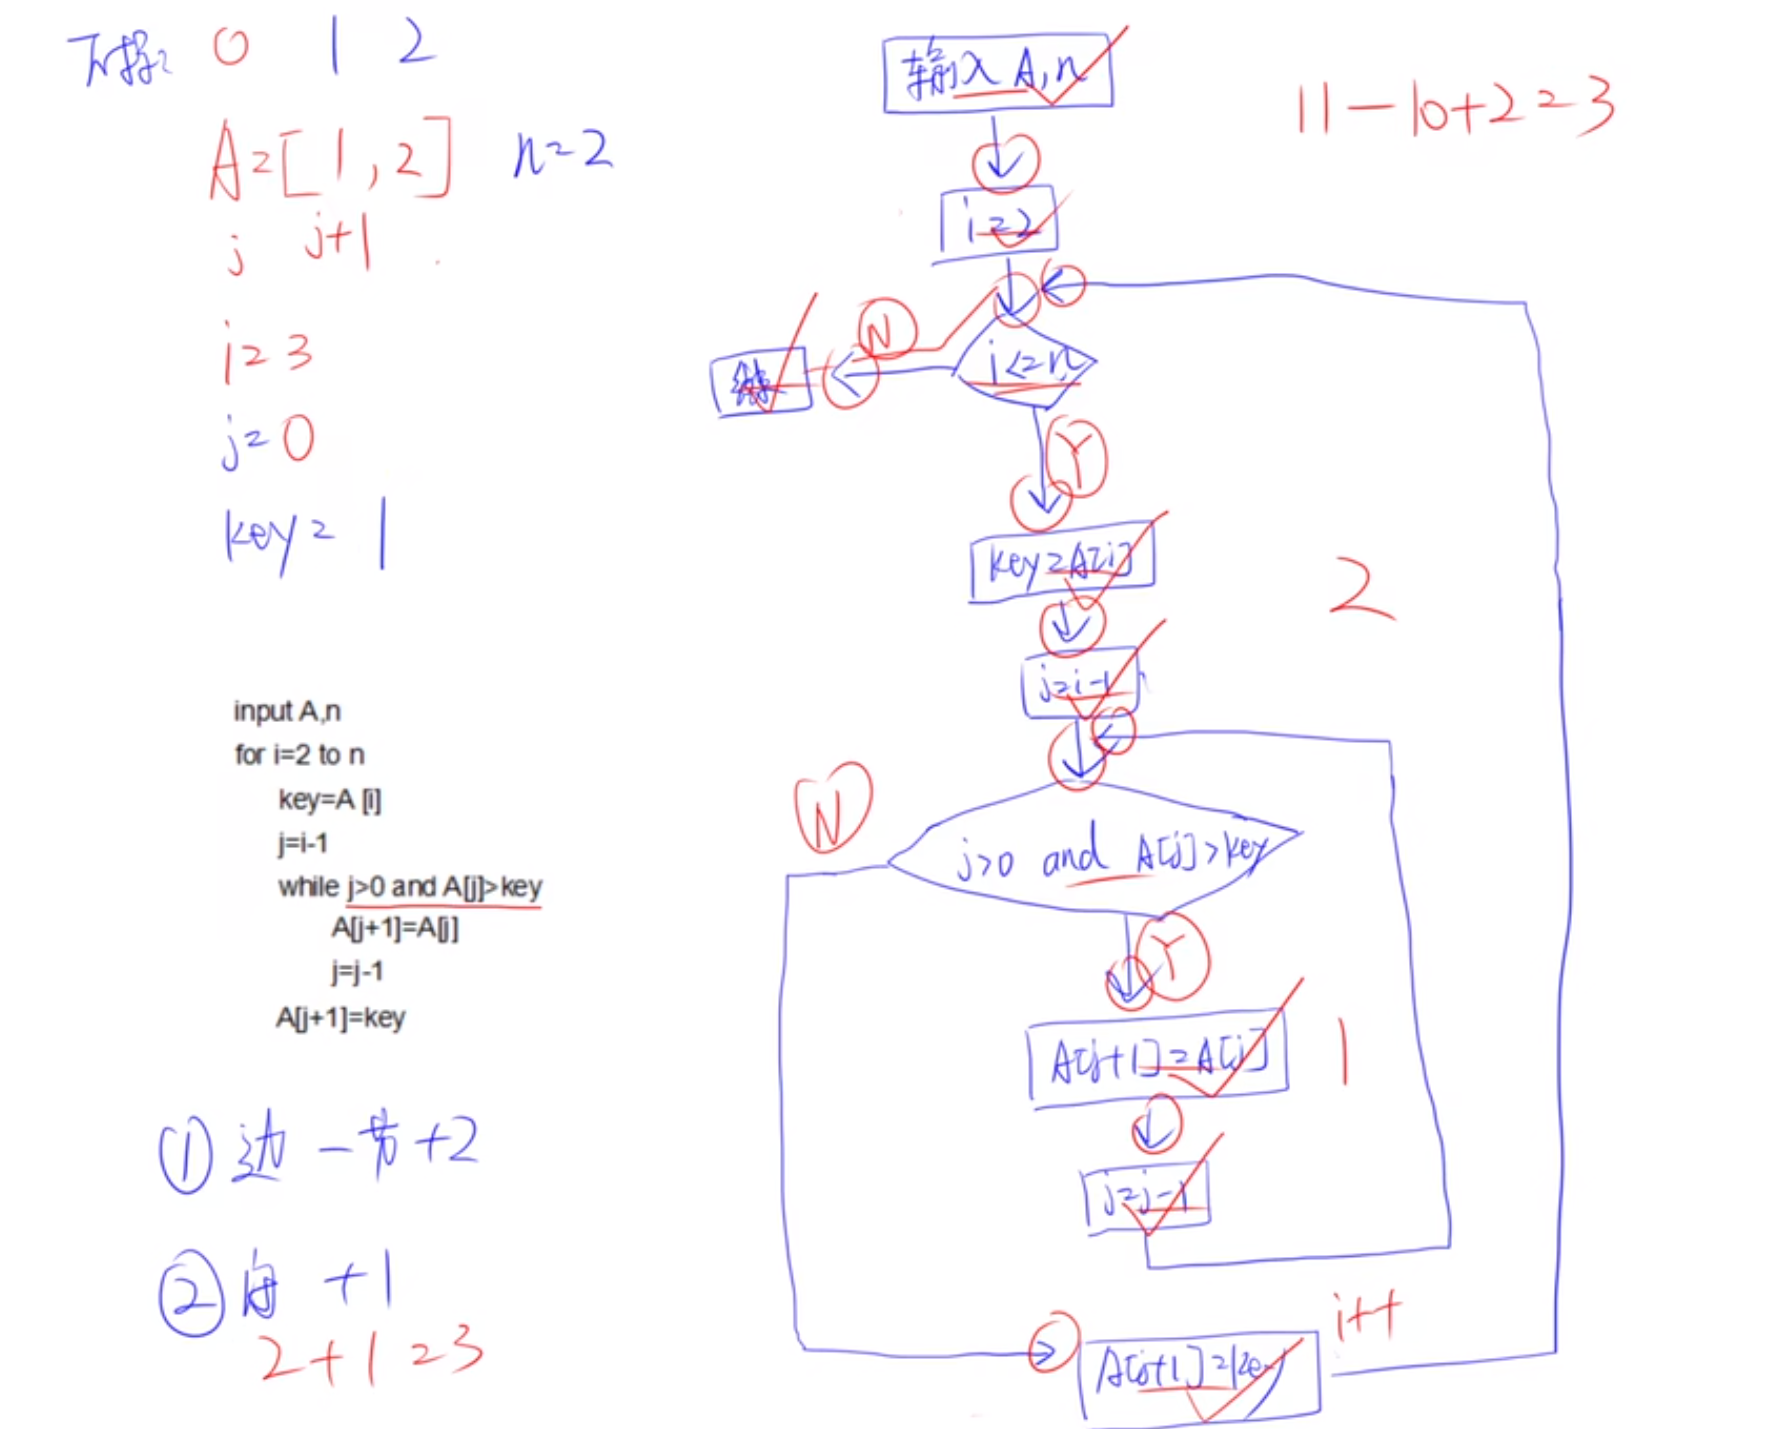 下标: 0 1 2
A=[1,2] n=2
j j+1
i=3
j=0
key=1
input A,n
for i=2 to n
key=A [i]
j=i-1
while j>0 and A[j]>key
A[j+1]=A[j]
j=j-1
A[j+1]=key
① 边-节+2
② +1
2+1=3
输入 A,n
11-10+2=3
i=2
N
i<=n
Y
key=A[i]
2
j=i-1
N
j>0 and A[j]>key
Y
A[j+1]=A[j]
1
j=j-1
i++
A[j+1]=key